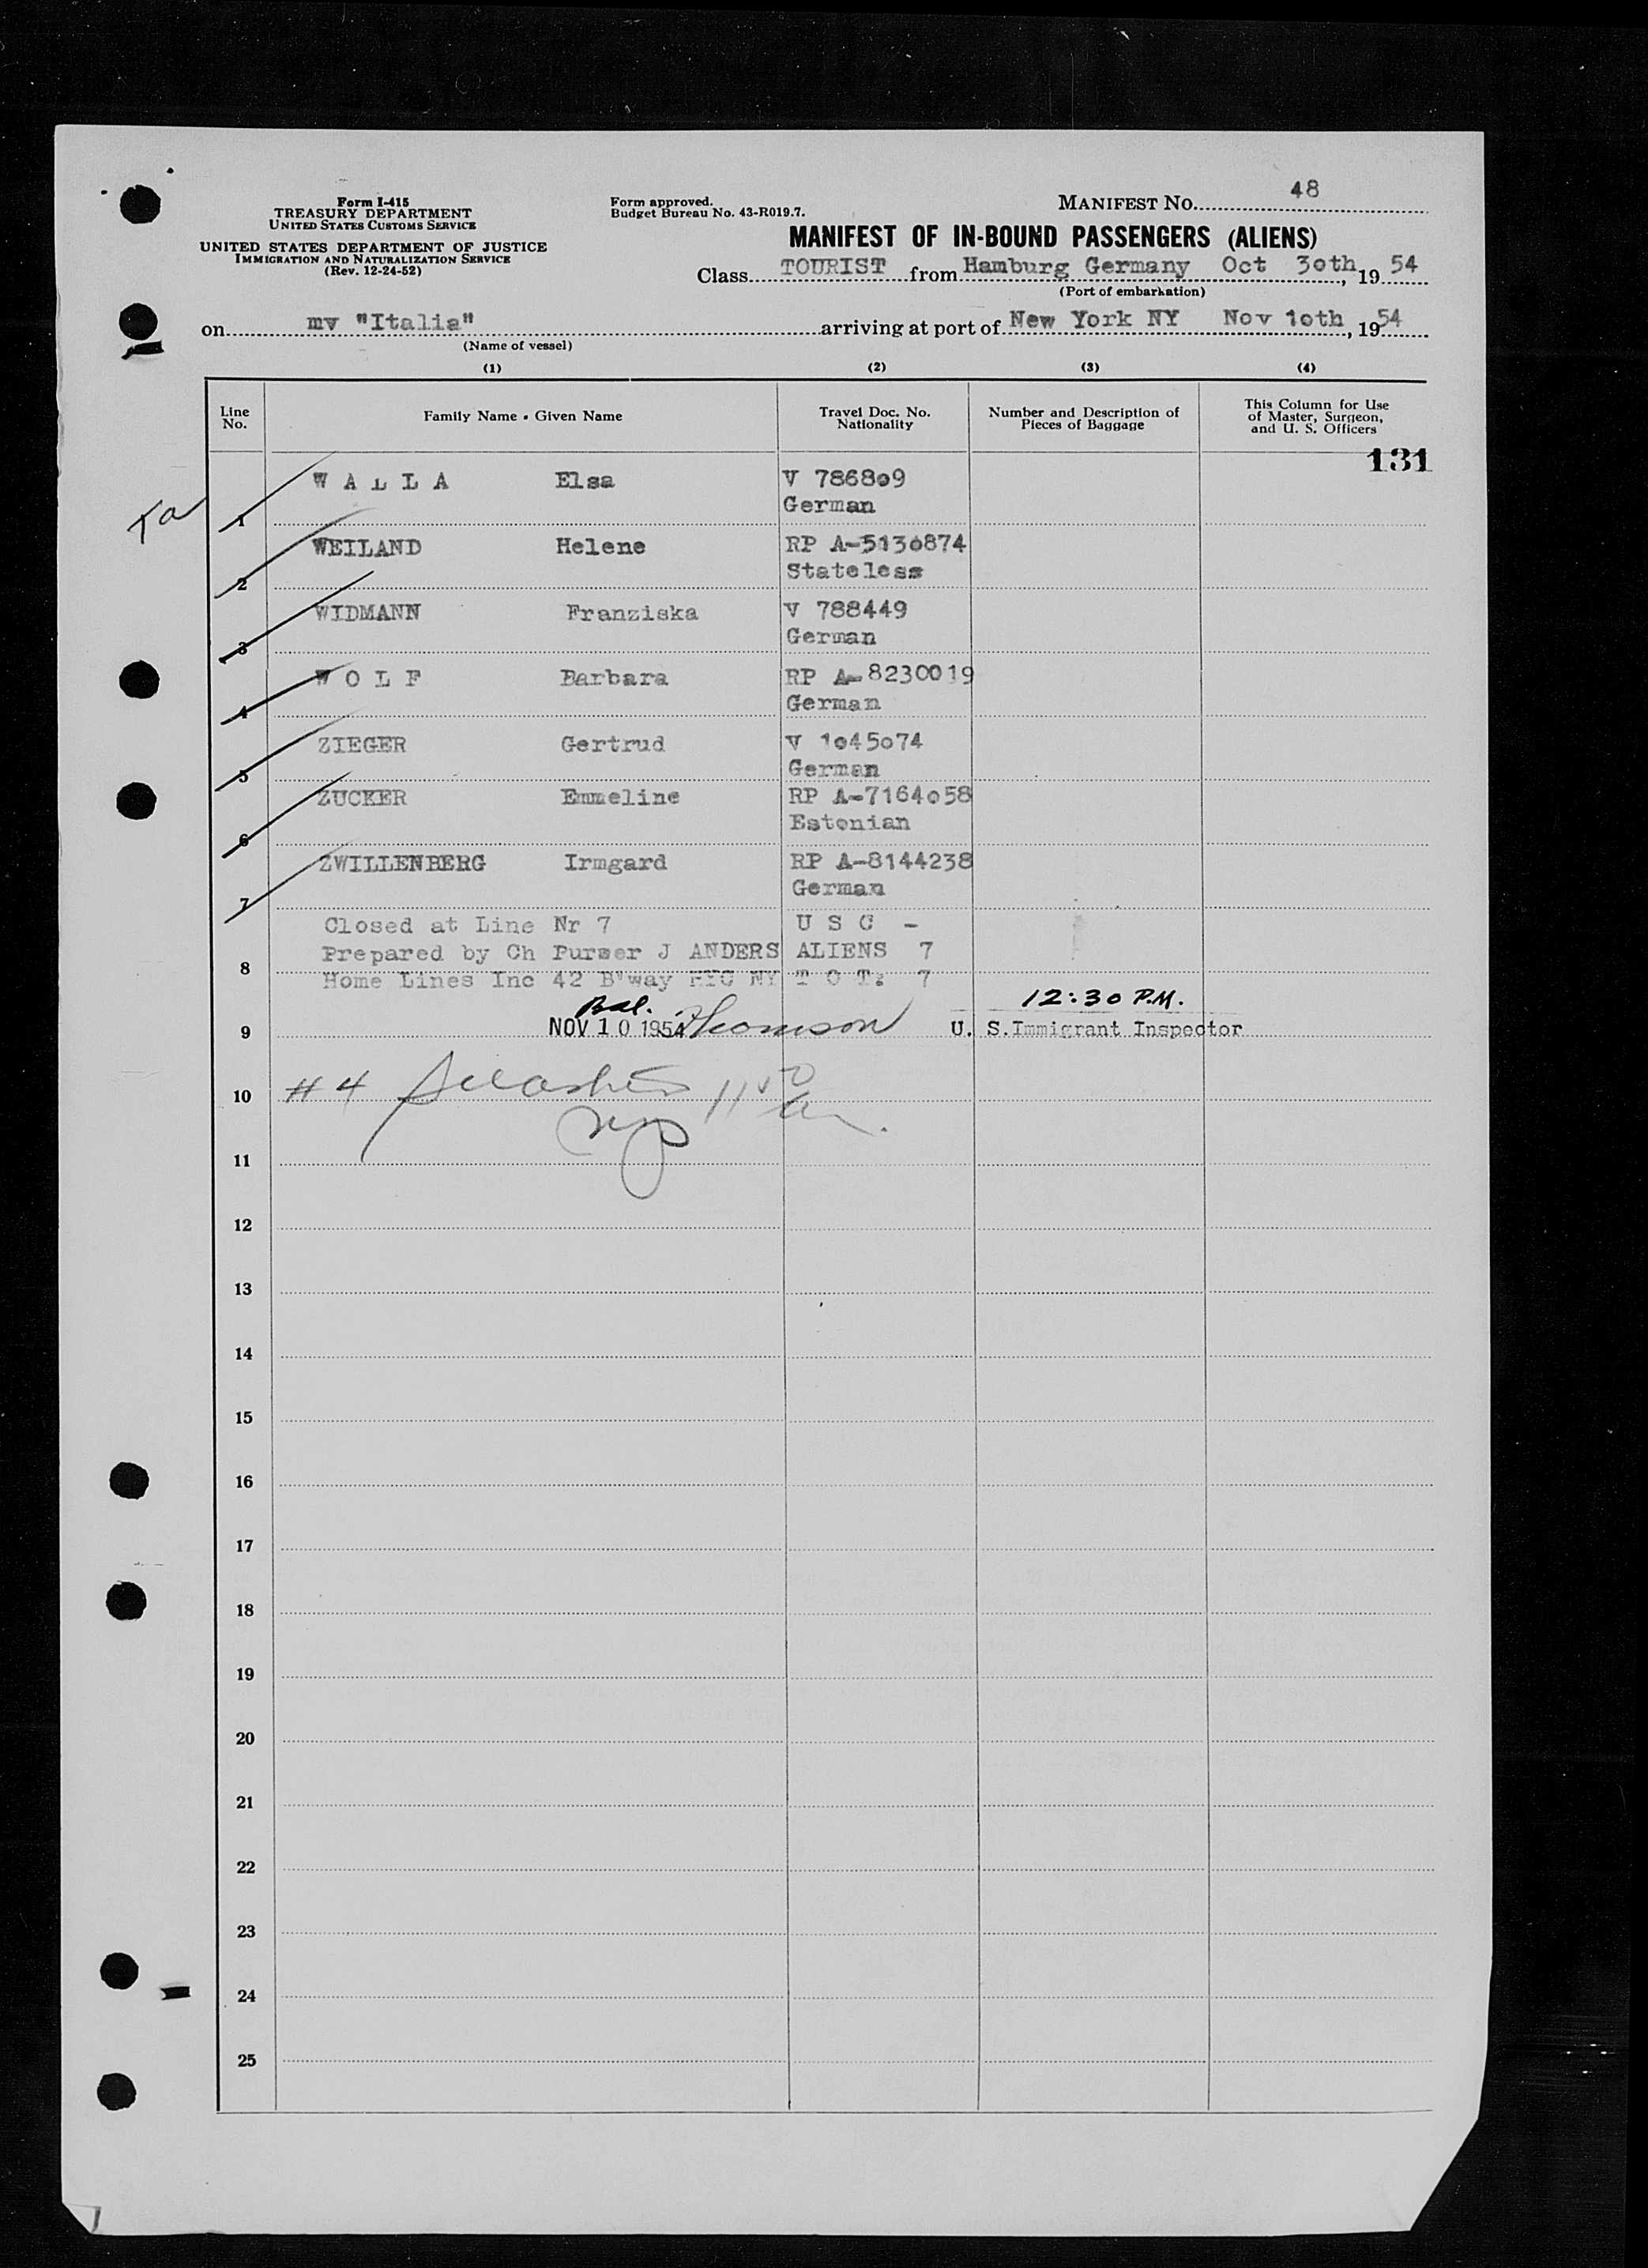 Form I-415
TREASURY DEPARTMENT
UNITED STATES CUSTOMS SERVICE
UNITED STATES DEPARTMENT OF JUSTICE
IMMIGRATION AND NATURALIZATION SERVICE
(Rev. 12-24-52)
Form approved.
Budget Bureau No. 43-R019.7.
MANIFEST No. 48
MANIFEST OF IN-BOUND PASSENGERS (ALIENS)
Class TOURIST from Hamburg Germany Oct 3oth, 19 54
(Port of embarkation)
on mv "Italia" arriving at port of New York NY Nov 1oth, 19 54
(Name of vessel)
(1) (2) (3) (4)
Line No. Family Name - Given Name Travel Doc. No. Nationality Number and Description of Pieces of Baggage This Column for Use of Master, Surgeon, and U. S. Officers
131
W A L L A Elsa V 7868o9
1 German
WEILAND Helene RP A-5136874
2 Stateless
WIDMANN Franziska V 788449
3 German
W O L F Barbara RP A-8230019
4 German
ZIEGER Gertrud V 1o45o74
5 German
ZUCKER Emmeline RP A-7164o58
6 Estonian
ZWILLENBERG Irmgard RP A-8144238
7 German
Closed at Line Nr 7 U S C -
Prepared by Ch Purser J ANDERS ALIENS 7
8 Home Lines Inc 42 B'way NYC NY T O T: 7
Bal. 12:30 P.M.
9 NOV 10 1954 Thomson U. S. Immigrant Inspector
10 #4
11
12
13
14
15
16
17
18
19
20
21
22
23
24
25